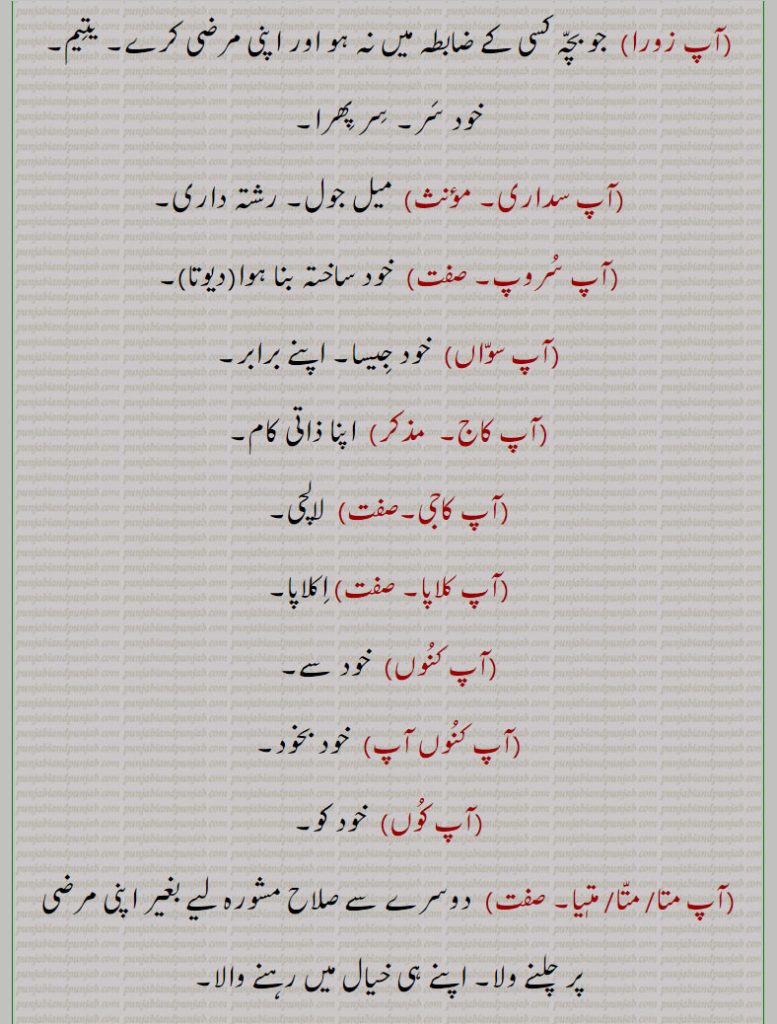 (آپ زورا) جو بچّہ کسی کے ضابطہ میں نہ ہو اور اپنی مرضی کرے۔ یتِیم۔
خود سَر۔ سِر پِھرا۔
(آپ سداری۔ مؤنث) میل جول۔ رشتہ داری۔
(آپ سُروپ۔ صفت) خود ساختہ بنا ہوا(دیوتا)۔
(آپ سوّاں) خود جِیسا۔ اپنے برابر۔
(آپ کاج۔ مذکر) اپنا ذاتی کام۔
(آپ کاجی۔صفت) لالچی۔
(آپ کلاپا۔ صفت) اِکلاپا۔
(آپ کنُوں) خود سے۔
(آپ کنُوں آپ) خود بخود۔
(آپ کوُں) خود کو۔
(آپ متا/ متّا/ متِیا۔ صفت) دوسرے سے صلاح مشورہ لیے بغیر اپنی مرضی
پر چلنے ولا۔ اپنے ہی خیال میں رہنے والا۔
punjabiandpunjab.com